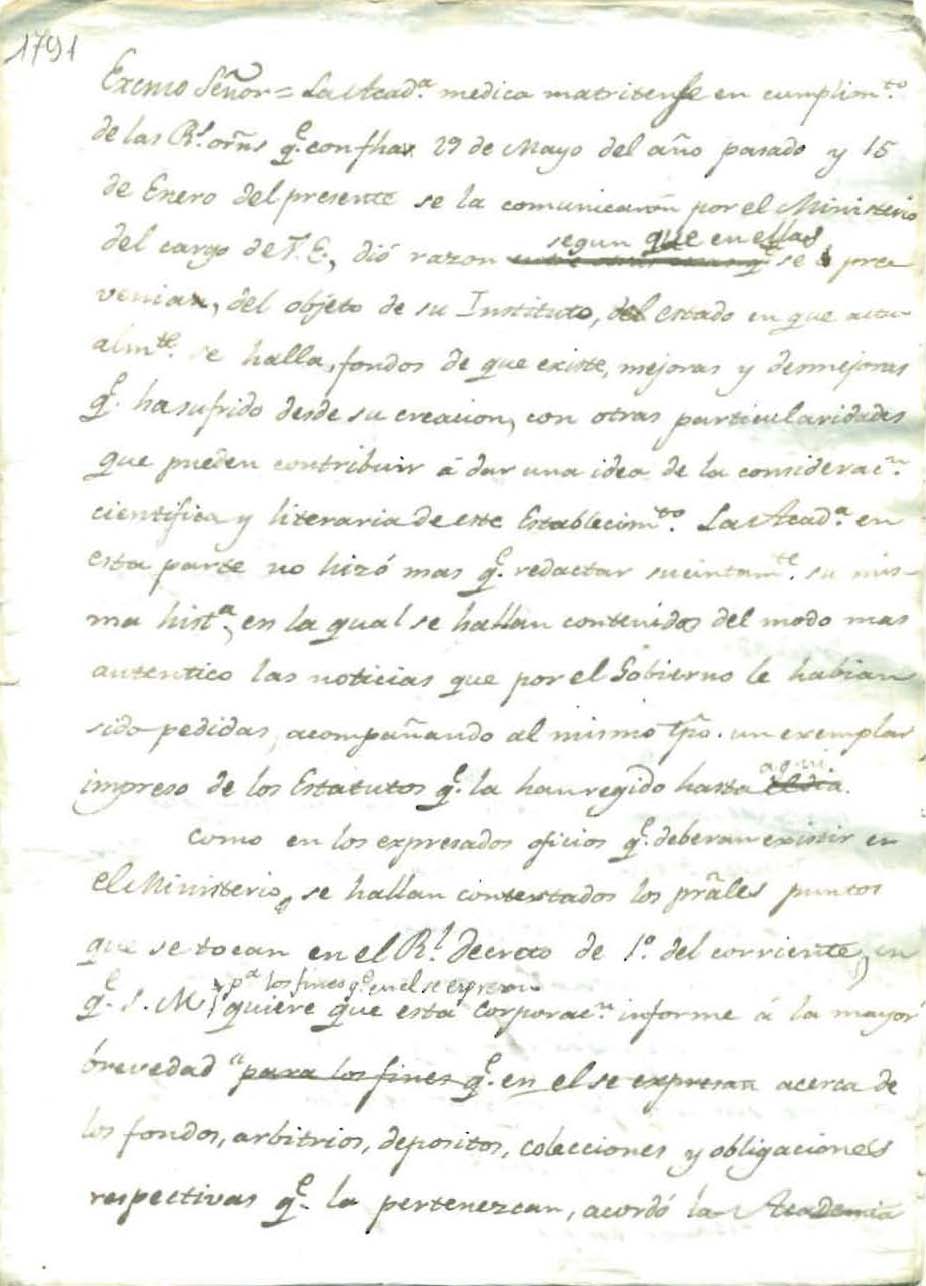 1791
Exc̃mo Señor = La Acad.ª medica matritense en cumplim.to
de las R.s orñs q.e con fhas 29 de Mayo del año pasado y 15
de Enero del presente se la comunicarón por el Ministerio
segun que en ellas
del cargo de V. E., dió razon se pre
venian, del objeto de su Instituto, del estado en que actu
alm.te se halla, fondos de que existe, mejoras y desmejoras
q.e ha sufrido desde su creacion, con otras particularidades
que pueden contribuir á dar una idea de la considerac.n
cientifica y literaria de este Establecim.to La Acad.ª en
esta parte no hizó mas q.e redactar sucintam.te su mis-
ma hist.ª, en la qual se hallan contenidas del modo mas
autentico las noticias que por el Gobierno le habian
sido pedidas, acompañando al mismo tp̃o. un exemplar
aqui
impreso de los Estatutos q.e la han regido hasta el dia.
Como en los expresados oficios q.e deberan existir en
el Ministerio, se hallan contextados los prãles puntos
que se tocan en el R.l decreto de 1.º del corriente, en
p.ª los fines q.e en el se expresan
q.e S. M. quiere que esta Corporac.n informe á la mayor
brevedad "para los fines q.e en el se expresan acerca de
los fondos, arbitrios, depositos, colecciones y obligaciones
respectivas q.e la pertenezcan, acordó la Academia